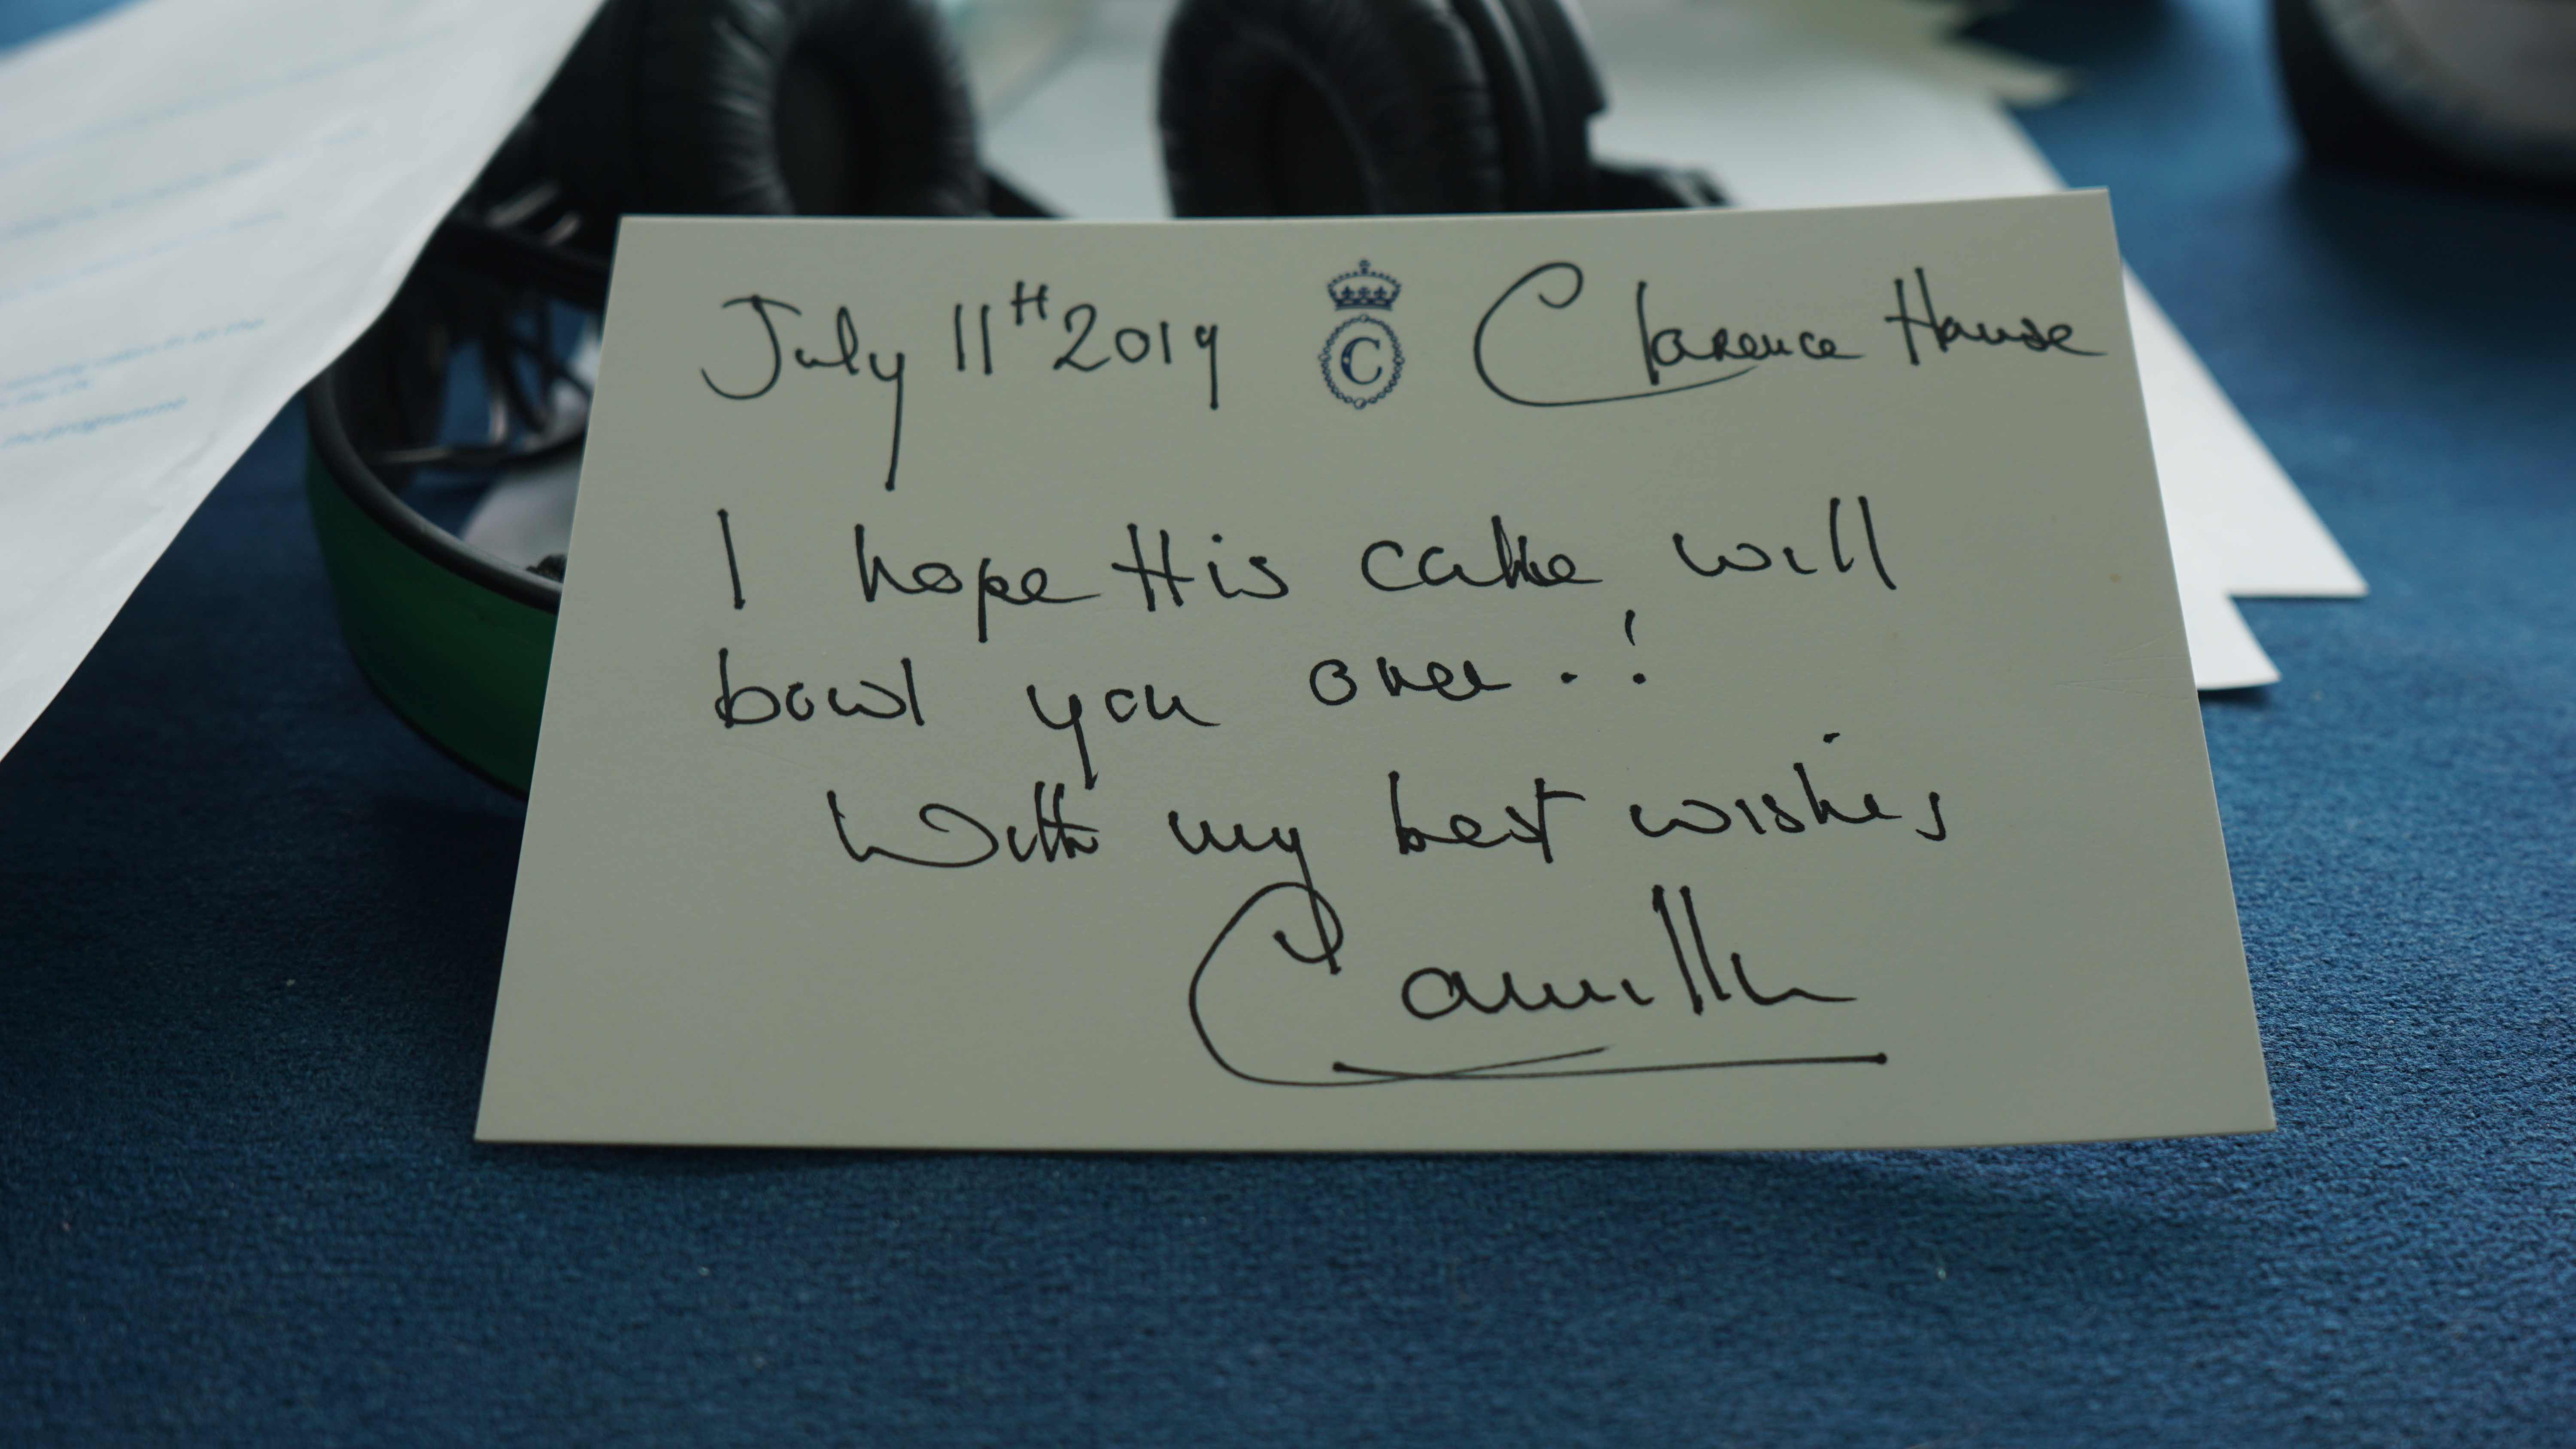 July 11TH 2019 C Clarence House
I hope this cake will
bowl you over.!
With my best wishes
Camilla